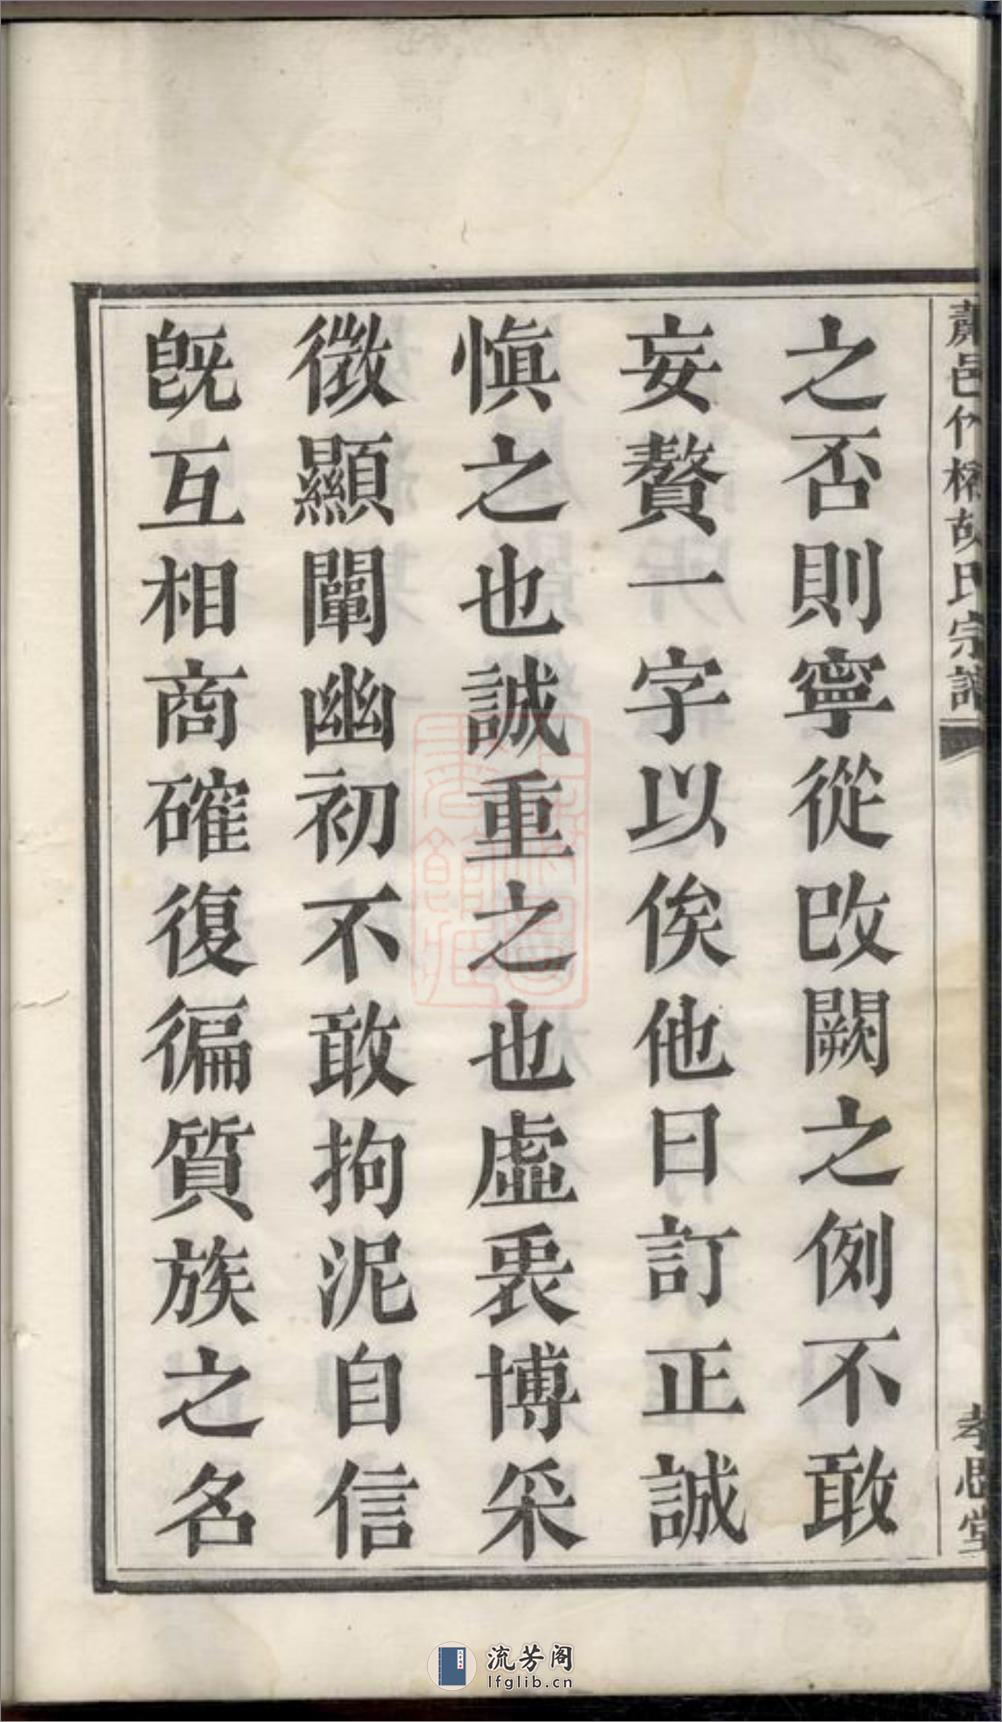 邑
胡氏宗譜
孝思堂
之否則寧從改闕之例不敢
妄贅一字以俟他日訂正誠
愼之也誠重之也虛衷博采
微顯闡幽初不敢拘泥自信
既互相商確復徧質族之名
上海圖書館藏
流芳阁
lfglib.cn